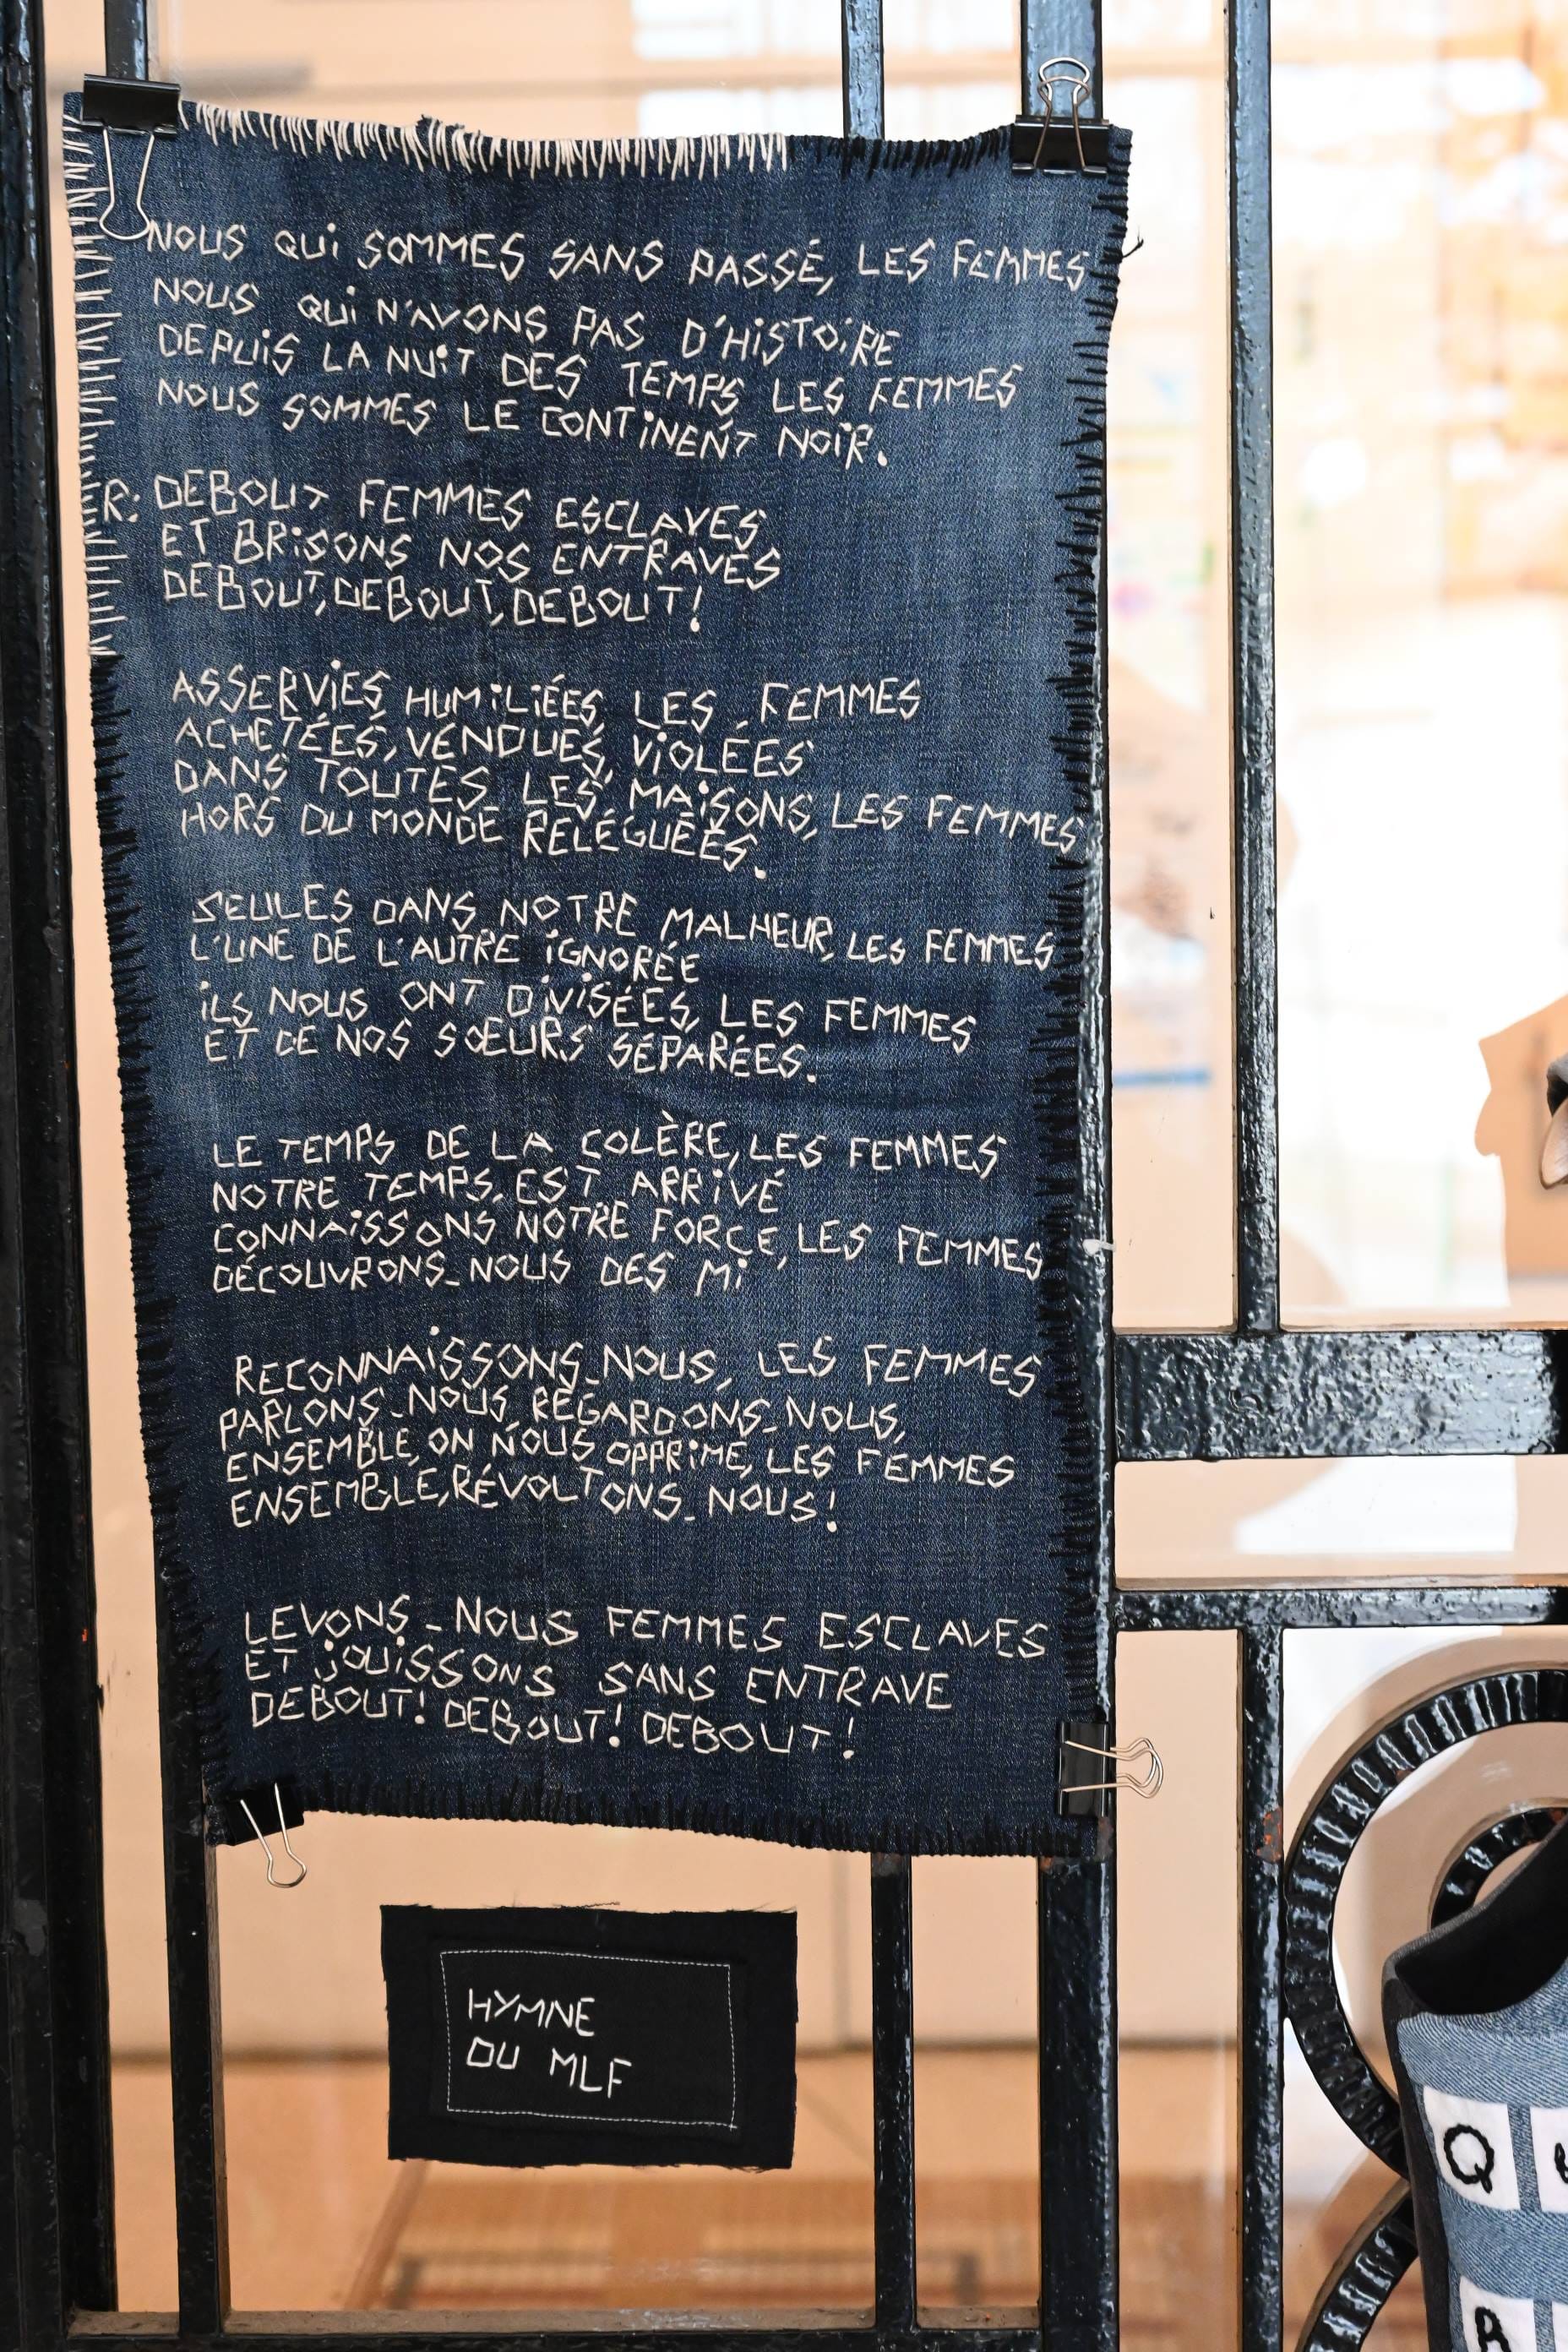 NOUS QUi SOMMES SANS PASSÉ, LES FEMMES
NOUS QUi N'AVONS PAS D'HiSTOiRE
DEPUiS LA NUiT DES TEMPS LES FEMMES
NOUS SOMMES LE CONTiNENT NOiR.
R: DEBOUT FEMMES ESCLAVES
ET BRiSONS NOS ENTRAVES
DEBOUT, DEBOUT, DEBOUT!
ASSERViES HUMiLiÉES, LES FEMMES
ACHETÉES, VENDUES, ViOLÉES
DANS TOUTES LES MAiSONS, LES FEMMES
HORS DU MONDE RELÉGUÉES.
SEULES DANS NOTRE MALHEUR, LES FEMMES
L'UNE DE L'AUTRE iGNORÉE
iLS NOUS ONT DiViSÉES, LES FEMMES
ET DE NOS SŒURS SÉPARÉES.
LE TEMPS DE LA COLÈRE, LES FEMMES
NOTRE TEMPS, EST ARRiVÉ
CONNAiSSONS NOTRE FORCE, LES FEMMES
DÉCOUVRONS-NOUS DES Mi
RECONNAiSSONS-NOUS, LES FEMMES
PARLONS-NOUS, REGARDONS-NOUS,
ENSEMBLE, ON NOUS OPPRiME, LES FEMMES
ENSEMBLE, RÉVOLTONS-NOUS!
LEVONS-NOUS FEMMES ESCLAVES
ET JOUiSSONS SANS ENTRAVE
DEBOUT! DEBOUT! DEBOUT!
HYMNE
DU MLF
Q
R